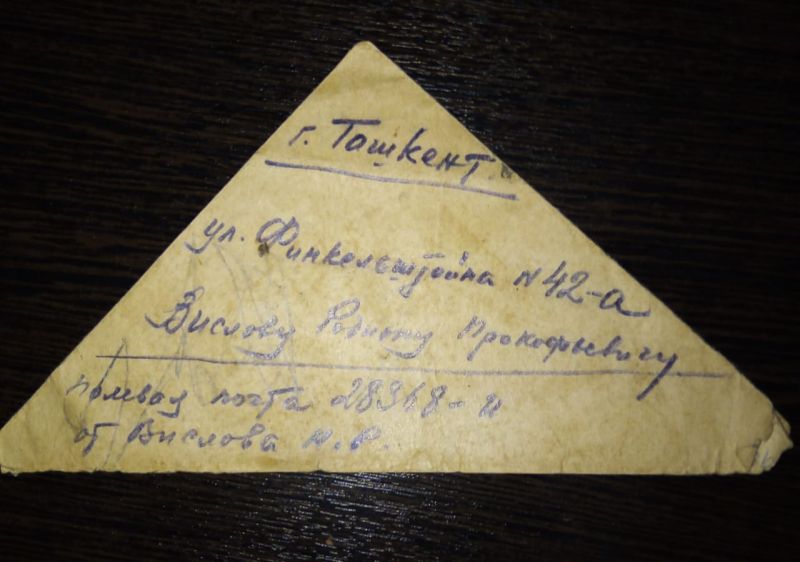 г. Ташкент
ул. Финкельштейна N 42-а
Вислову Родиону Прокофьевичу
полевая почта 28368-и
от Вислова И.Р.